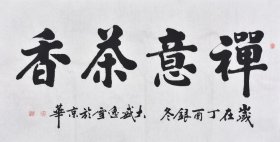 禪意茶香
歲在丁酉銀冬 大威逸雲於京華